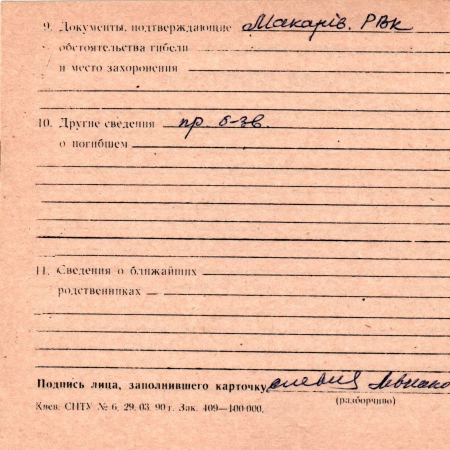 9. Документы, подтверждающие Макарів. РВК
обстоятельства гибели
и место захоронения
10. Другие сведения пр. б-зв.
о погибшем
11. Сведения о ближайших
родственниках
Подпись лица, заполнившего карточку
(разборчиво)
Киев. СНТУ № 6. 29. 03. 90 г. Зак. 409—400 000.